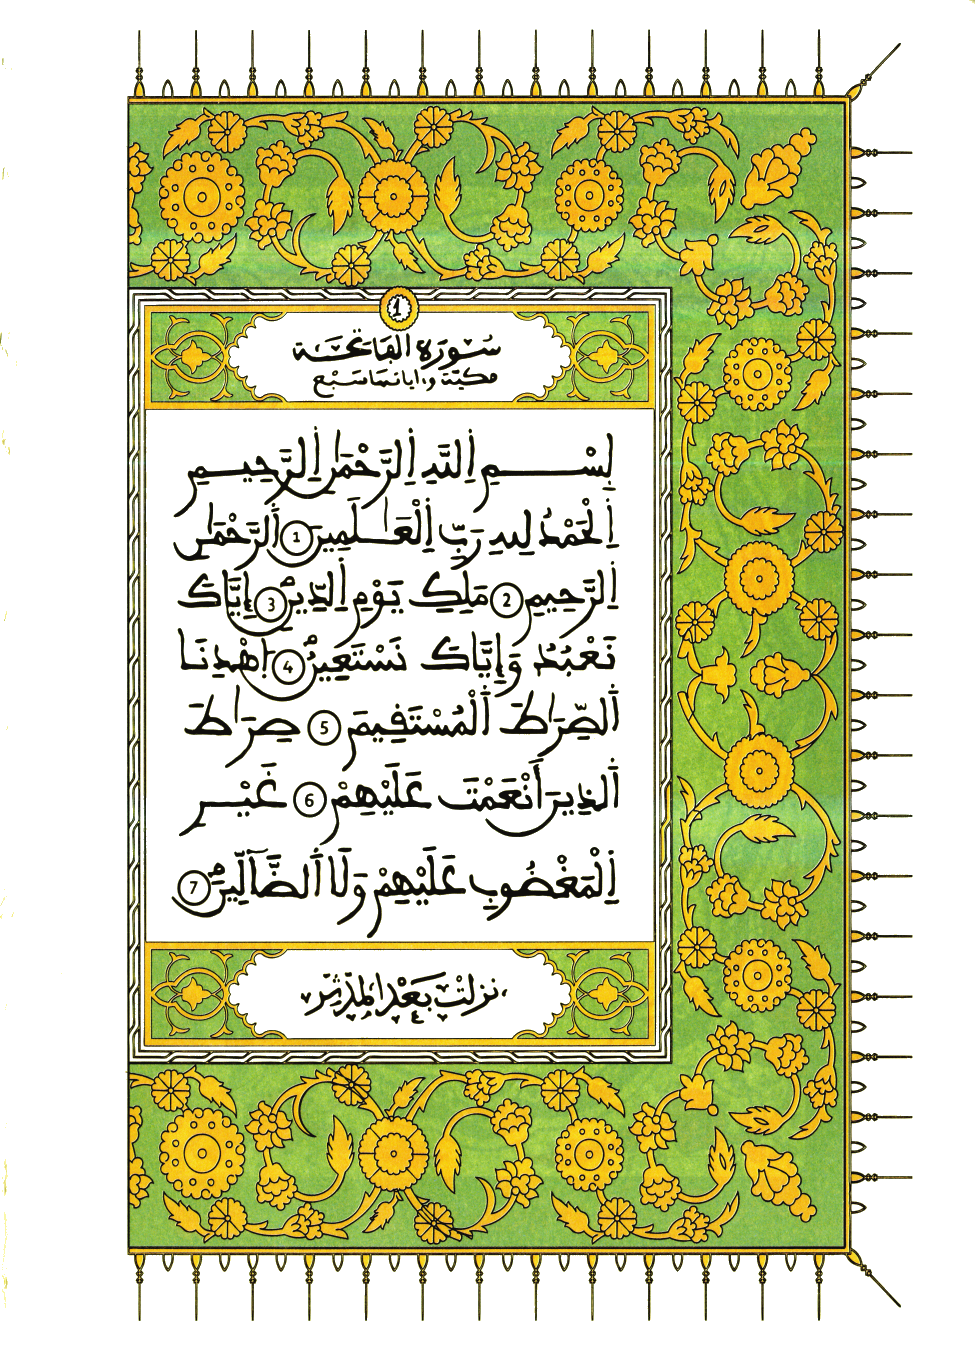 1
سُورَة الفَاتِحَة
مكيّة وءاياتها سَبْع
بِسْمِ اِللَّهِ اِلرَّحْمَٰنِ اِلرَّحِيمِ
اِلْحَمْدُ لِلهِ رَبِّ اِلْعَٰلَمِينَ 1 اَلرَّحْمَٰنِ
اِلرَّحِيمِ 2 مَلِكِ يَوْمِ اِلدِّينِ 3 إِيَّاكَ
نَعْبُدُ وَإِيَّاكَ نَسْتَعِينُ 4 اُهْدِنَا
اَلصِّرَٰطَ اَلْمُسْتَقِيمَ 5 صِرَٰطَ
اَلذِينَ أَنْعَمْتَ عَلَيْهِمْ 6 غَيْرِ
اِلْمَغْضُوبِ عَلَيْهِمْ وَلَا اَلضَّآلِّينَ 7
نزلتْ بَعْد المدّثّر